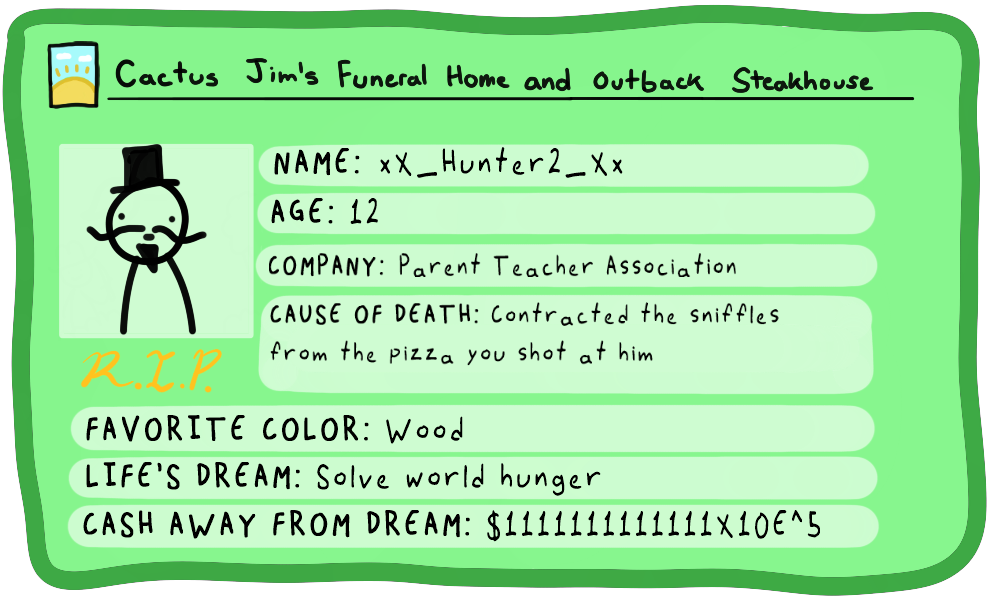 Cactus Jim's Funeral Home and Outback Steakhouse
NAME: xX_Hunter2_Xx
AGE: 12
COMPANY: Parent Teacher Association
CAUSE OF DEATH: Contracted the sniffles
from the pizza you shot at him
R.I.P.
FAVORITE COLOR: Wood
LIFE'S DREAM: Solve world hunger
CASH AWAY FROM DREAM: $11111111111111X10E^5